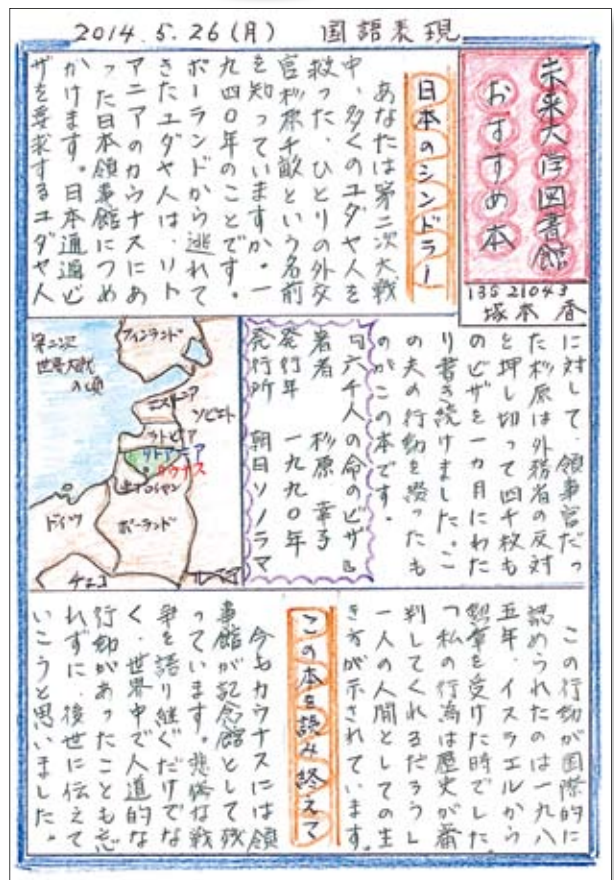 2014.5.26(月) 国語表現
未来大学図書館
おすすめ本
13S21043
塚本 香
日本のシンドラー
あなたは第二次大戦
中、多くのユダヤ人を
救った、ひとりの外交
官杉原千畝という名前
を知っていますか。一
九四〇年のことです。
ポーランドから逃れて
きたユダヤ人は、リト
アニアのカウナスにあ
った日本領事館につめ
かけます。日本通過ビ
ザを要求するユダヤ人
に対して、領事官だっ
た杉原は外務省の反対
を押し切って四千枚も
のビザを一カ月にわた
り書き続けました。こ
の夫の行動を綴ったも
のがこの本です。
『六千人の命のビザ』
著者 杉原 幸子
発行年 一九九〇年
発行所 朝日ソノラマ
第二次
世界大戦
の頃
フィンランド
エストニア
ソビエト
ラトビア
リトアニア
カウナス
東プロイセン
ドイツ
ポーランド
チェコ
この行動が国際的に
認められたのは一九八
五年、イスラエルから
勲章を受けた時でした。
「私の行為は歴史が審
判してくれるだろう」
一人の人間としての生
き方が示されています。
この本を読み終えて
今もカウナスには領
事館が記念館として残
っています。悲惨な戦
争を語り継ぐだけでな
く、世界中で人道的な
行動があったことも忘
れずに、後世に伝えて
いこうと思いました。